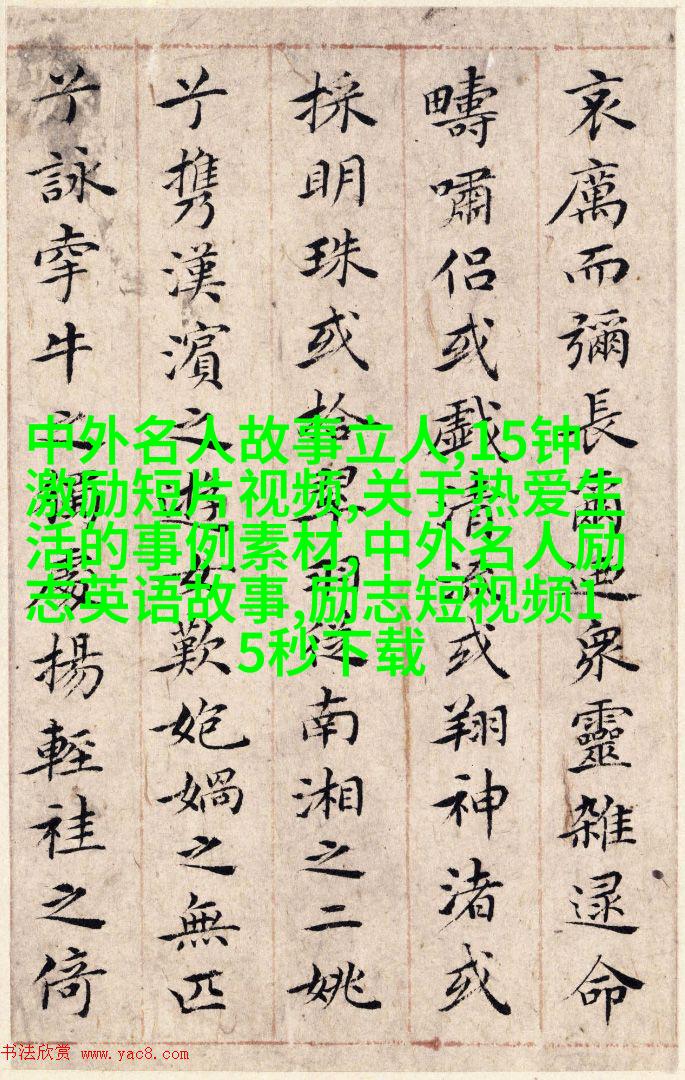 哀厲而彌長爾迺衆靈雜遝命
疇嘯侣或戲清流或翔神渚或
採明珠或拾翠羽從南湘之二姚
兮携漢濱之遊女歎媧之無匹
兮詠牽牛之獨處揚輕袿之倚
中外名人故事立人,15钟
激励短片视频,关于热爱生
活的事例素材,中外名人励
志英语故事,励志短视频1
5秒下载
书法欣赏 www.yac8.com